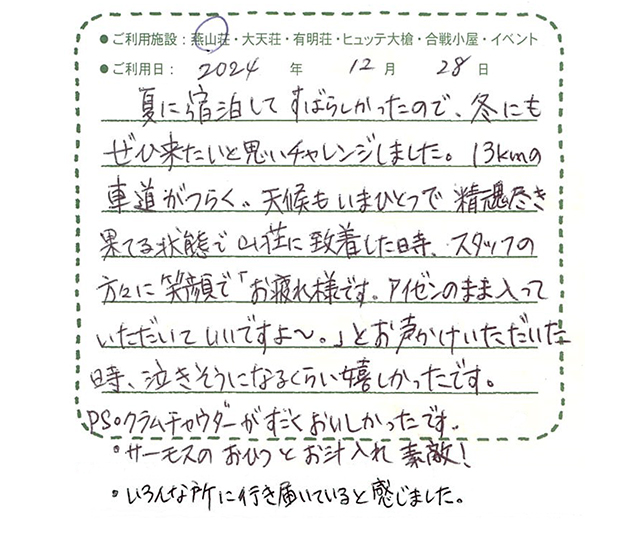 ●ご利用施設：燕山荘・大天荘・有明荘・ヒュッテ大槍・合戦小屋・イベント
●ご利用日： 2024 年 12 月 28 日
夏に宿泊してすばらしかったので、冬にも
ぜひ来たいと思いチャレンジしました。13kmの
車道がつらく、天候もいまひとつで精魂尽き
果てる状態で山荘に致着した時、スタッフの
方々に笑顔で「お疲れ様です。アイゼンのまま入って
いただいていいですよ〜。」とお声かけいただいた
時、泣きそうになるくらい嬉しかったです。
PS。クラムチャウダーがすごくおいしかったです。
・サーモスのおひつとお汁入れ素敵！
・いろんな所に行き届いていると感じました。